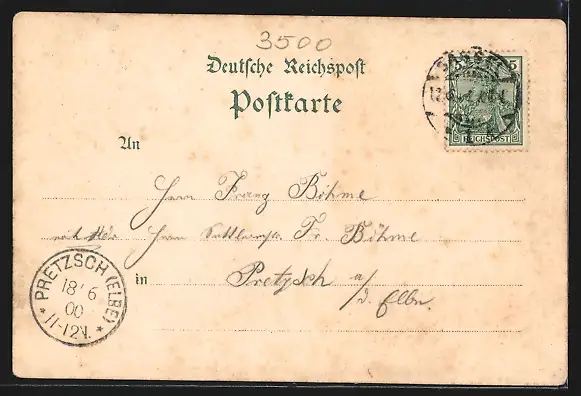 3500
Deutsche Reichspost
Postkarte
5
REICHSPOST
An
Herrn Franz Böhme
Herrn Fr. Böhme
in Pretzsch a/
d. Elbe.
PRETZSCH (ELBE)
18/6
00
11-12V.